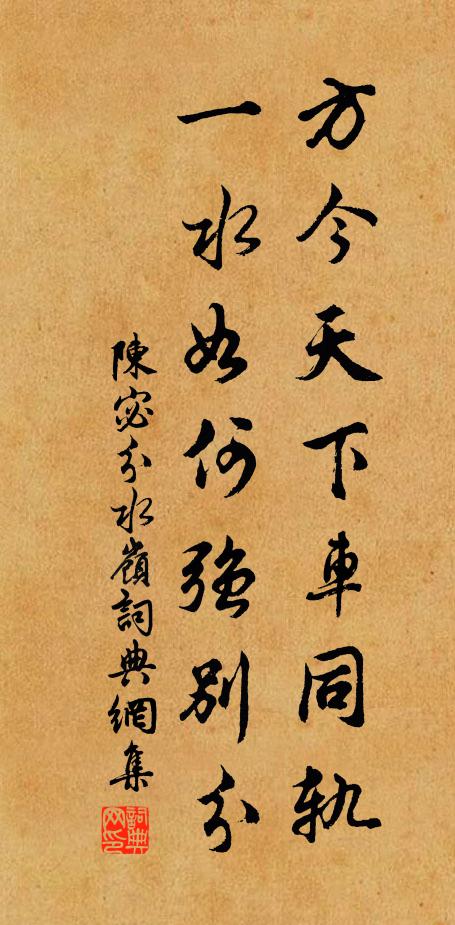 方今天下車同軌
一水如何強別分
陳宓分水嶺詞典網集
詞典网印